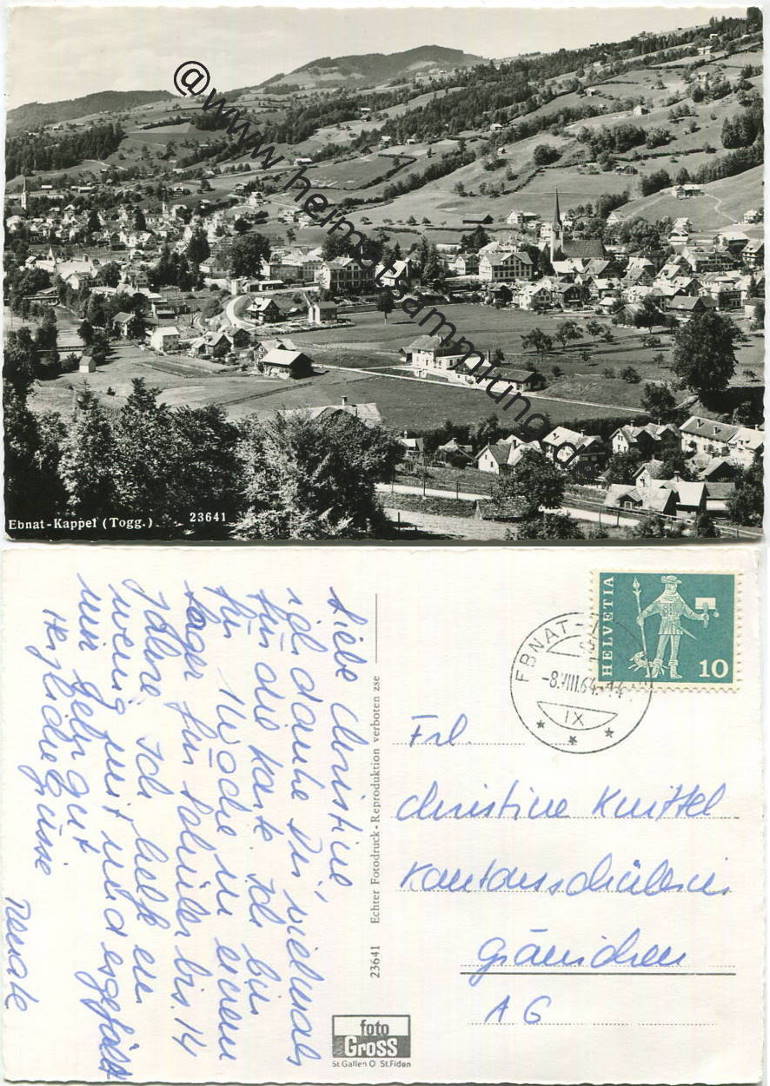 @www.heimatsammlung.de
Ebnat-Kappel (Togg.) 23641
Liebe Christine,
ich danke Dir vielmals
für die Karte. Ich bin
für 1 Woche in einem
Lager für Schüler bis 14
Jahre. Ich helfe ein
wenig mit und es gefällt
mir sehr gut
Herzliche Grüsse
Renate
23641 Echter Fotodruck - Reproduktion verboten zse
foto
Gross
St.Gallen O St.Fiden
HELVETIA
10
EBNAT-
-8.VIII.64.-14
IX
Frl.
Christine Knittel
Kantonsschülerin
Gränichen
AG